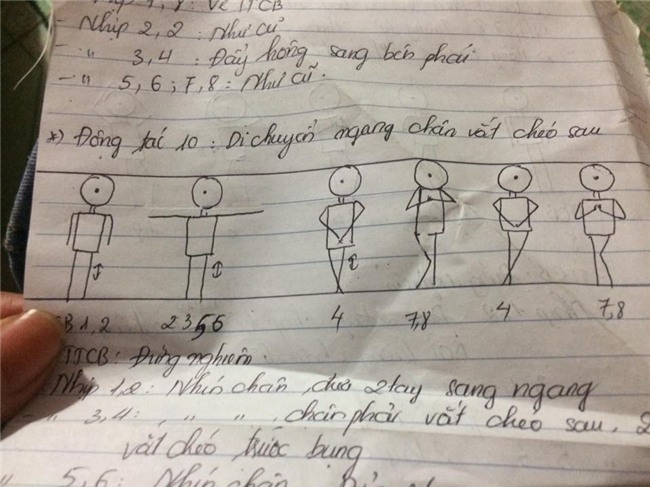 1, 8 : Về TTCB
- Nhịp 2, 2 : Như cũ
- " 3, 4 : Đẩy hông sang bên phải
- " 5, 6 ; 7, 8 : Như cũ.
*) Động tác 10 : Di chuyển ngang chân vắt chéo sau
CB 1, 2 2 3 5 6 4 7,8 4 7,8
TTCB : Đứng nghiêm.
- Nhịp 1, 2 : Nhún chân, đưa 2 tay sang ngang
- " 3, 4 : " " , chân phải vắt chéo sau, 2
vắt chéo trước bụng
" 5, 6 : Nhún chân